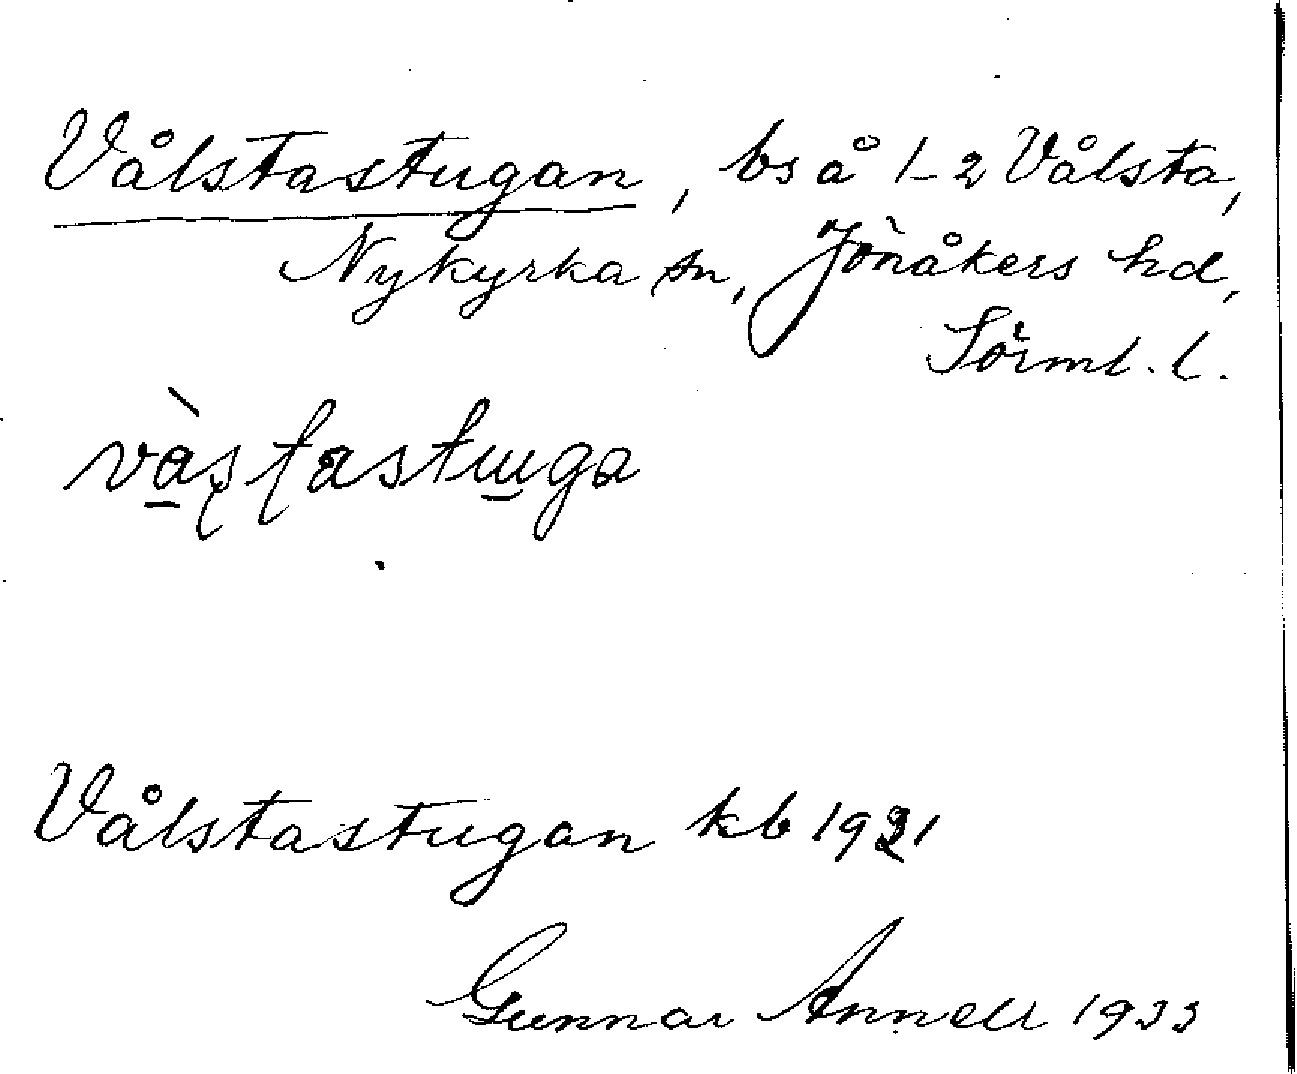 Vålstastugan, bs å 1-2 Vålsta,
Nykyrka sn, Jönåkers hd,
Sörml. l.
Vålstastugan kb 1921
Gunnar Annell 1933